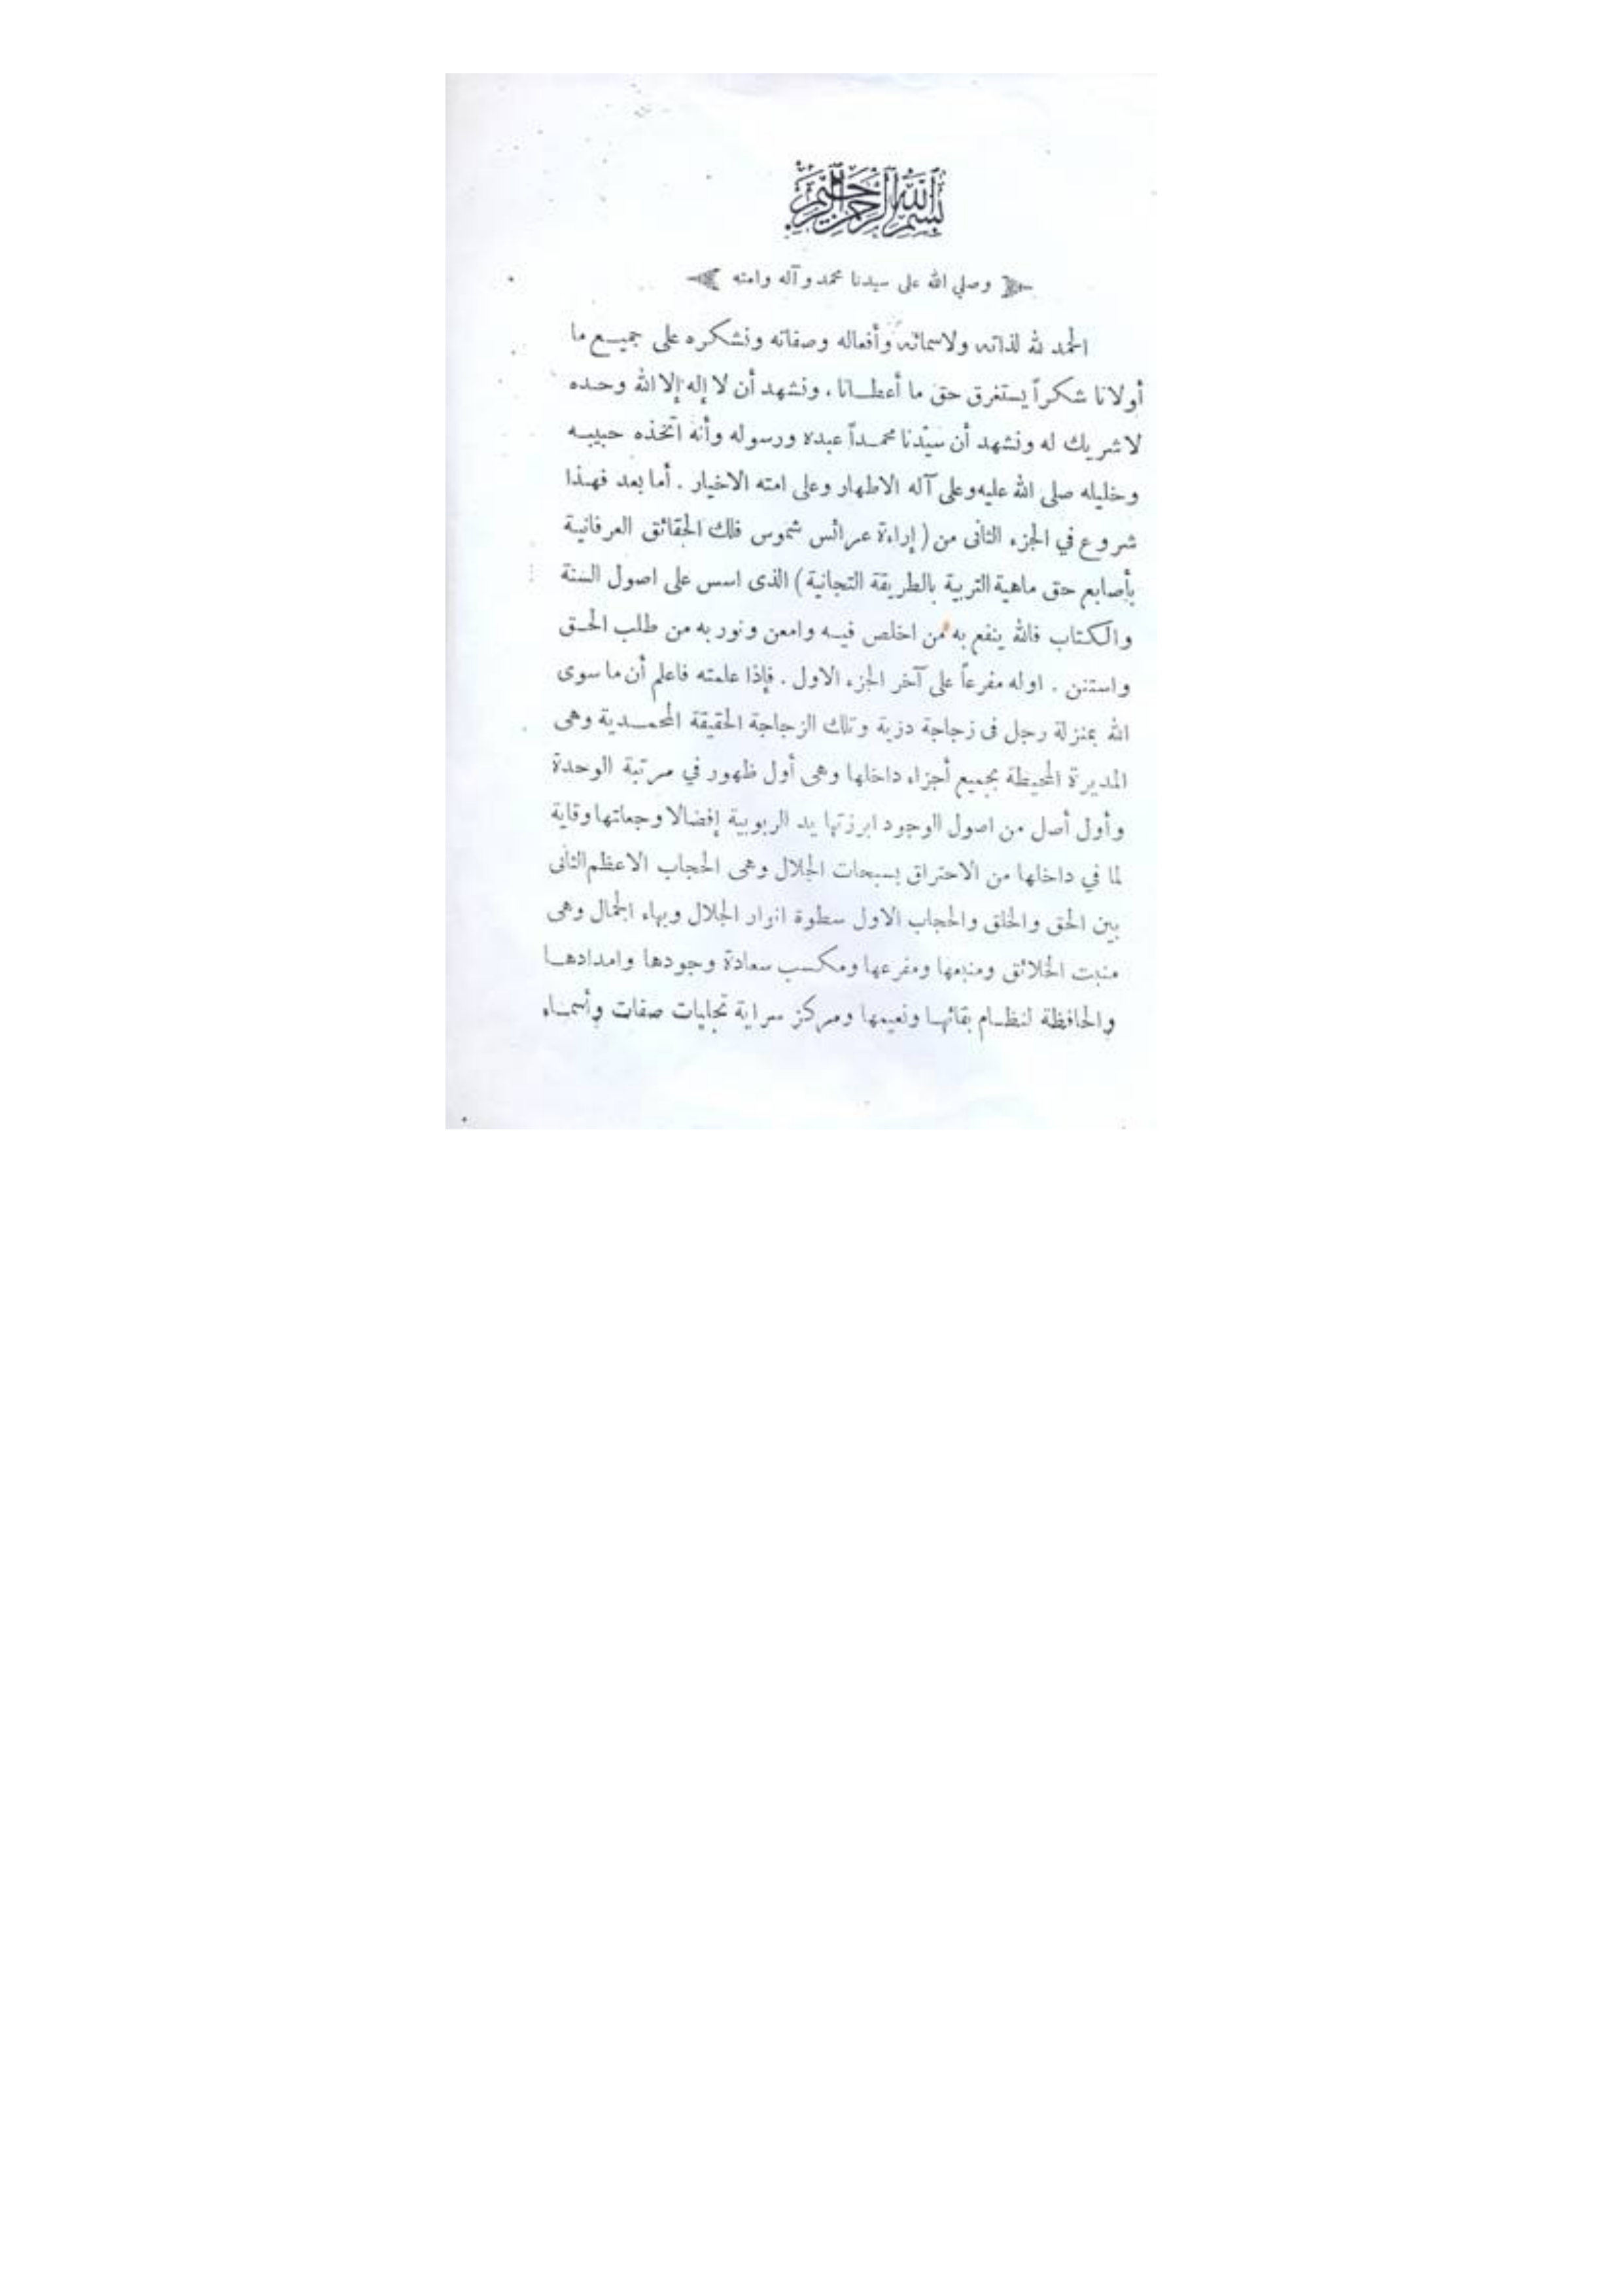 بسم الله الرحمن الرحيم
وصلي الله على سيدنا محمد وآله وامته
الحمد لله لذاته ولاسمائه وأفعاله وصفاته ونشكره على جميع ما
أولانا شكراً يستغرق حق ما أعطانا . ونشهد أن لا إله إلا الله وحده
لا شريك له ونشهد أن سيّدنا محمداً عبده ورسوله وأنه اتخذه حبيبه
وخليله صلى الله عليه وعلى آله الاطهار وعلى امته الاخيار . أما بعد فهذا
شروع في الجزء الثانى من ( إراءة عرائس شموس فلك الحقائق العرفانية
بأصابع حق ماهية التربية بالطريقة التجانية ) الذى اسس على اصول السنة
والكتاب فالله ينفع به من اخلص فيه وامعن ونور به من طلب الحق
واستنن . اوله مفرعاً على آخر الجزء الاول . فإذا علمته فاعلم أن ما سوى
الله بمنزلة رجل فى زجاجة درية وتلك الزجاجة الحقيقة المحمدية وهى
المديرة المحيطة بجميع أجزاء داخلها وهى أول ظهور في مرتبة الوحدة
وأول أصل من اصول الوجود ابرزتها يد الربوبية إفضالا وجعلتها وقاية
لما في داخلها من الاحتراق بسبحات الجلال وهى الحجاب الاعظم الثانى
بين الحق والخلق والحجاب الاول سطوة انوار الجلال وبهاء الجمال وهى
منبت الخلائق ومنبعها ومفرعها ومكسب سعادة وجودها وامدادها
والحافظة لنظام بقائها ونعيمها ومركز سراية تجليات صفات وأسماء